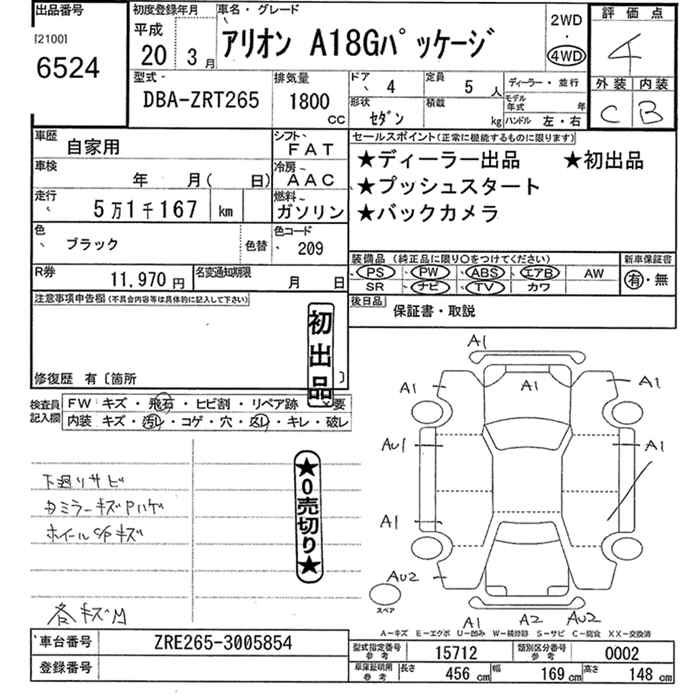 出品番号
[2100]
6524
初度登録年月
平成
20 3月
車名・グレード
アリオン A18Gパッケージ
2WD
・
4WD
評価点
4
外装 内装
C B
型式
DBA-ZRT265
排気量
1800
CC
ドア 4
定員 5人
ディーラー・並行
形状 セダン
積載 kg
モデル年式 年
ハンドル 左・右
車歴
自家用
シフト FAT
車検
年 月( 日)
冷房 AAC
走行
5万1千167 km
燃料 ガソリン
色
ブラック
色替
色コード 209
R券
11,970円
名変通知期限
月 日
セールスポイント(正常に機能するものに限ります)
★ディーラー出品 ★初出品
★プッシュスタート
★バックカメラ
装備品 (純正品に限り○をつけてください)
PS PW ABS エアB AW
SR ナビ TV カワ
新車保証書
有・無
後日品
保証書・取説
注意事項申告欄(不具合内容等は具体的に記入して下さい)
初出品
修復歴 有〔箇所 〕
検査員記入欄
FW キズ・飛石・ヒビ割・リペア跡 ・要
内装 キズ・汚レ・コゲ・穴・凶レ・キレ・破レ
下廻りサビ
ホイールC/Pキズ
各キズ有
★0売切り★
A1
A1 A1 A1
AU1 A1
A1
AU2
スペア
A1 A2 AU2
A―キズ E―エクボ U―凹み W―補修跡 S―サビ C―腐食 XX―交換済
車台番号
ZRE265-3005854
登録番号
型式指定番号 参考 15712
類別区分番号 参考 0002
車庫証明用 参考 長さ 456cm 幅 169cm 高さ 148cm